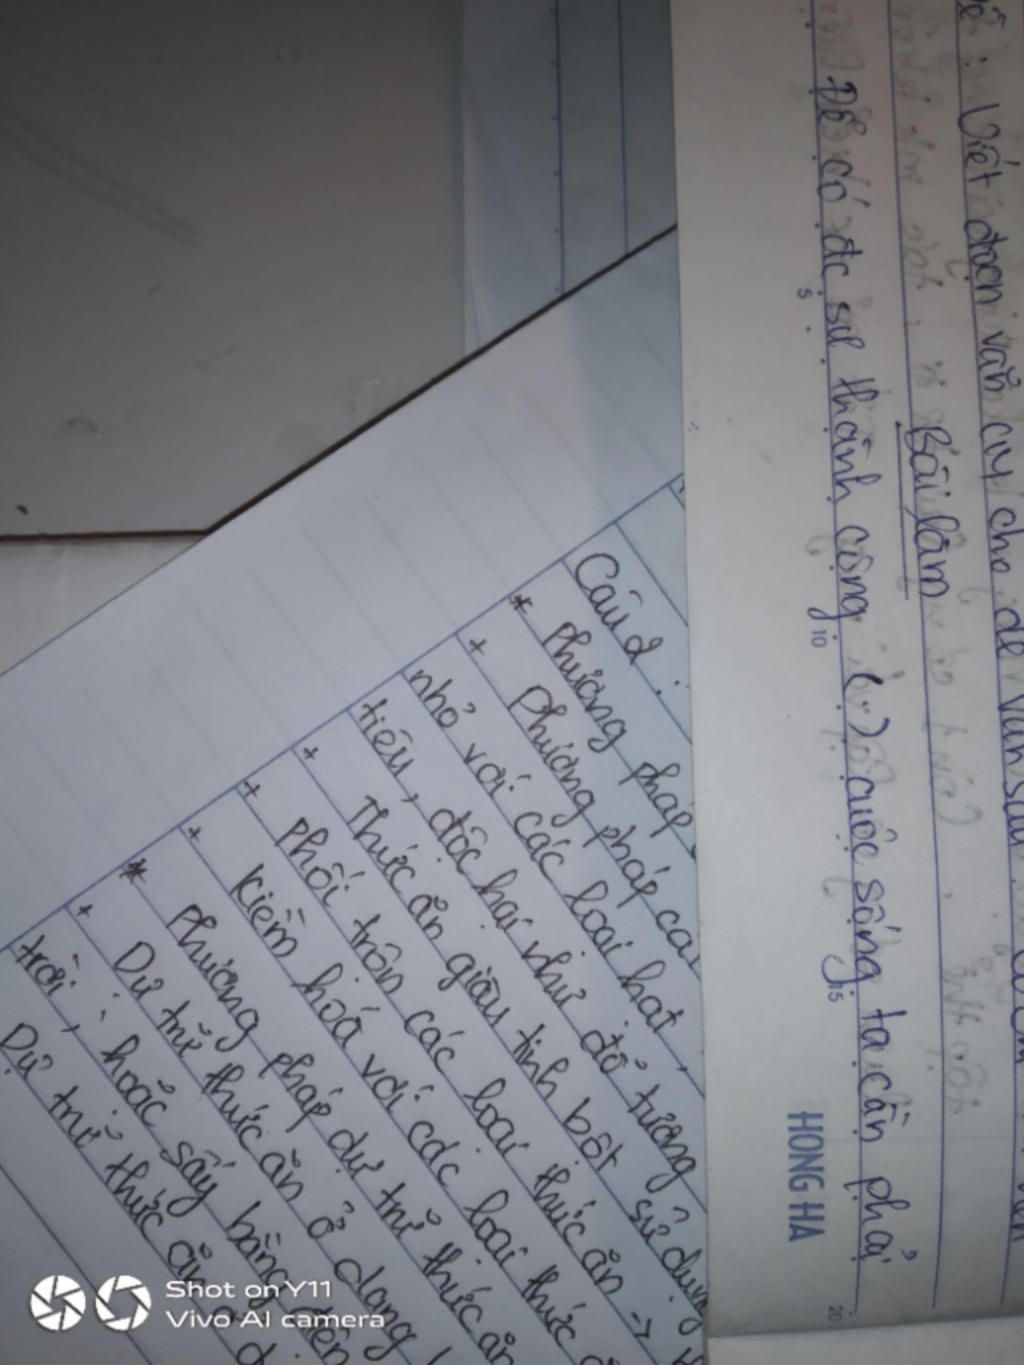 Viết đoạn văn
Bài làm
Để có đc sự thành công (..) cuộc sống ta cần phải
HONG HA
5
10
15
20
Câu 2 :
* Phương pháp
+ Phương pháp
nhỏ với các loại hạt,
tiêu, độc hại như đỗ tương
+ Thức ăn giàu tinh bột sử dụng
+ Phối trộn các loại thức ăn →
+ Kiềm hoá với các loại thức
* Phương pháp dự trữ thức ăn
+ Dự trữ thức ăn ở dạng
trời, hoặc sấy bằng điện
Dự trữ thức ăn
Shot on Y11
Vivo AI camera